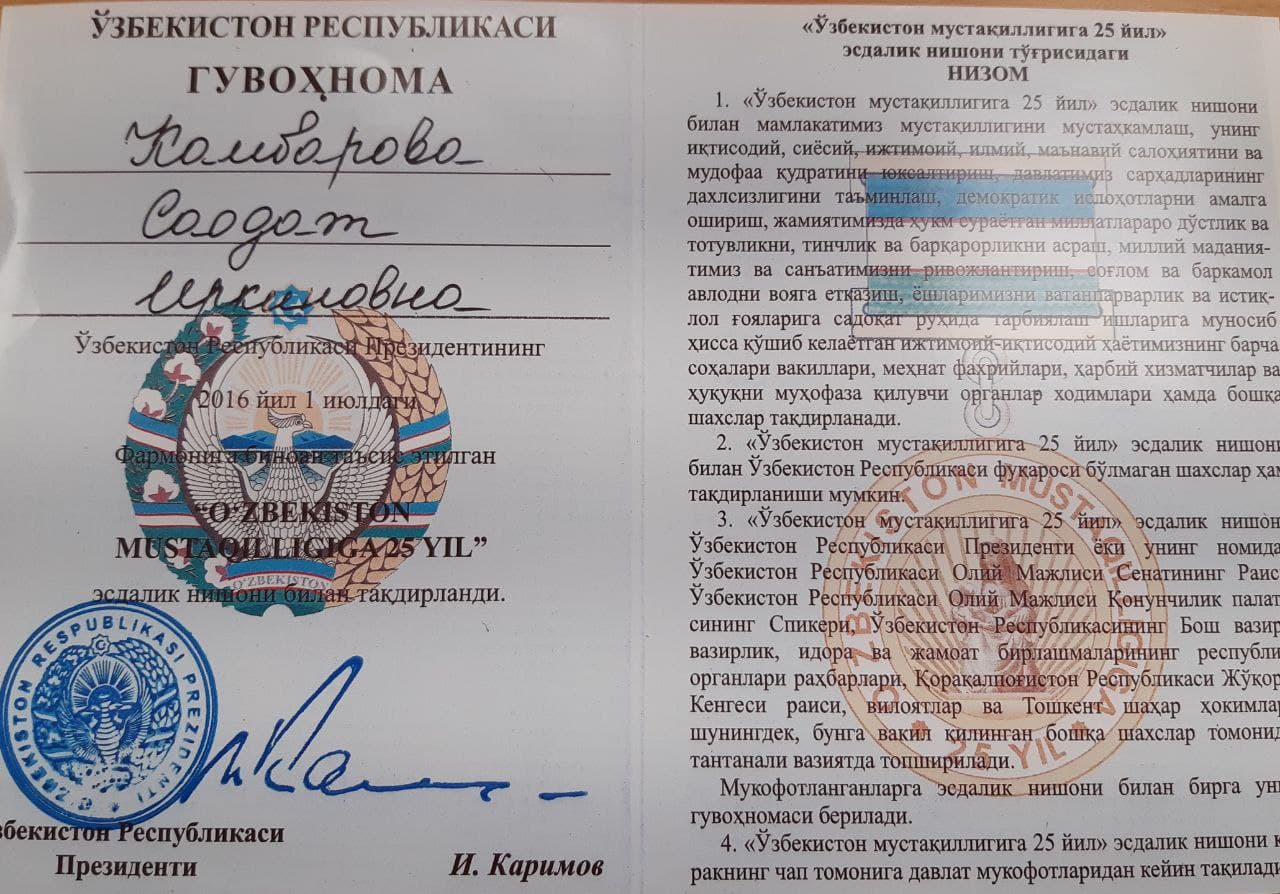 ЎЗБЕКИСТОН РЕСПУБЛИКАСИ
ГУВОҲНОМА
Камбарова
Саодат
Иркиновна
Ўзбекистон Республикаси Президентининг
2016 йил 1 июлдаги
Фармонига биноан таъсис этилган
“O‘ZBEKISTON
MUSTAQILLIGIGA 25 YIL”
O‘ZBEKISTON
эсдалик нишони билан тақдирланди.
O‘ZBEKISTON RESPUBLIKASI PREZIDENTI
збекистон Республикаси
Президенти
И. Каримов
«Ўзбекистон мустақиллигига 25 йил»
эсдалик нишони тўғрисидаги
НИЗОМ
1. «Ўзбекистон мустақиллигига 25 йил» эсдалик нишони
билан мамлакатимиз мустақиллигини мустаҳкамлаш, унинг
иқтисодий, сиёсий, ижтимоий, илмий, маънавий салоҳиятини ва
мудофаа қудратини юксалтириш, давлатимиз сарҳадларининг
дахлсизлигини таъминлаш, демократик ислоҳотларни амалга
ошириш, жамиятимизда ҳукм сураётган миллатлараро дўстлик ва
тотувликни, тинчлик ва барқарорликни асраш, миллий мадания-
тимиз ва санъатимизни ривожлантириш, соғлом ва баркамол
авлодни вояга етказиш, ёшларимизни ватанпарварлик ва истиқ-
лол ғояларига садоқат руҳида тарбиялаш ишларига муносиб
ҳисса қўшиб келаётган ижтимоий-иқтисодий ҳаётимизнинг барча
соҳалари вакиллари, меҳнат фахрийлари, ҳарбий хизматчилар ва
ҳуқуқни муҳофаза қилувчи органлар ходимлари ҳамда бошқа
шахслар тақдирланади.
2. «Ўзбекистон мустақиллигига 25 йил» эсдалик нишони
билан Ўзбекистон Республикаси фуқароси бўлмаган шахслар ҳам
тақдирланиши мумкин.
3. «Ўзбекистон мустақиллигига 25 йил» эсдалик нишон
Ўзбекистон Республикаси Президенти ёки унинг номида
Ўзбекистон Республикаси Олий Мажлиси Сенатининг Раис
Ўзбекистон Республикаси Олий Мажлиси Қонунчилик палат
сининг Спикери, Ўзбекистон Республикасининг Бош вазир
вазирлик, идора ва жамоат бирлашмаларининг республи
органлари раҳбарлари, Қорақалпоғистон Республикаси Жўқор
Кенгеси раиси, вилоятлар ва Тошкент шаҳар ҳокимлар
шунингдек, бунга вакил қилинган бошқа шахслар томонид
тантанали вазиятда топширилади.
Мукофотланганларга эсдалик нишони билан бирга уни
гувоҳномаси берилади.
4. «Ўзбекистон мустақиллигига 25 йил» эсдалик нишони к
ракнинг чап томонига давлат мукофотларидан кейин тақилади
O‘ZBEKISTON MUSTAQILLIGIGA
25 YIL